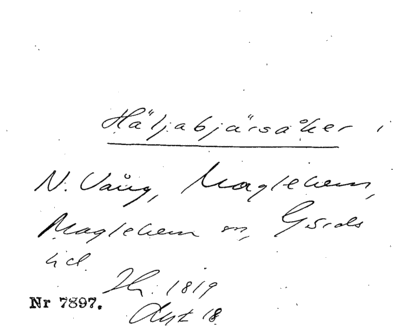 Häljabjärsåker i
N. Vång, Maglehem,
Maglehem sn, Gärds
hd. 1819
Nr 7897. Akt 18